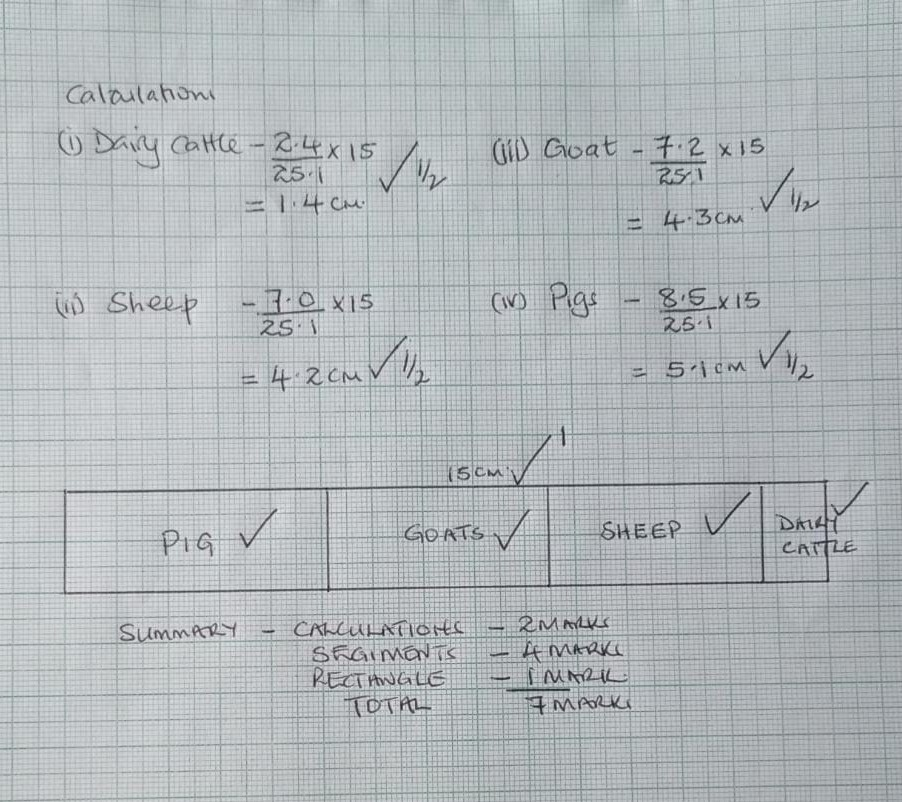 Calculations
(i) Dairy Cattle - 2.4/25.1 x 15 ✓ 1/2
= 1.4 cm.
(iii) Goat - 7.2/25.1 x 15
= 4.3 cm ✓ 1/2
(ii) Sheep - 7.0/25.1 x 15
= 4.2 cm ✓ 1/2
(iv) Pigs - 8.5/25.1 x 15
= 5.1 cm ✓ 1/2
15 cm ✓ 1
PIG ✓ GOATS ✓ SHEEP ✓ DAIRY ✓
CATTLE
SUMMARY - CALCULATIONS - 2 MARKS
SEGIMENTS - 4 MARKS
RECTANGLE - 1 MARK
TOTAL 7 MARKS